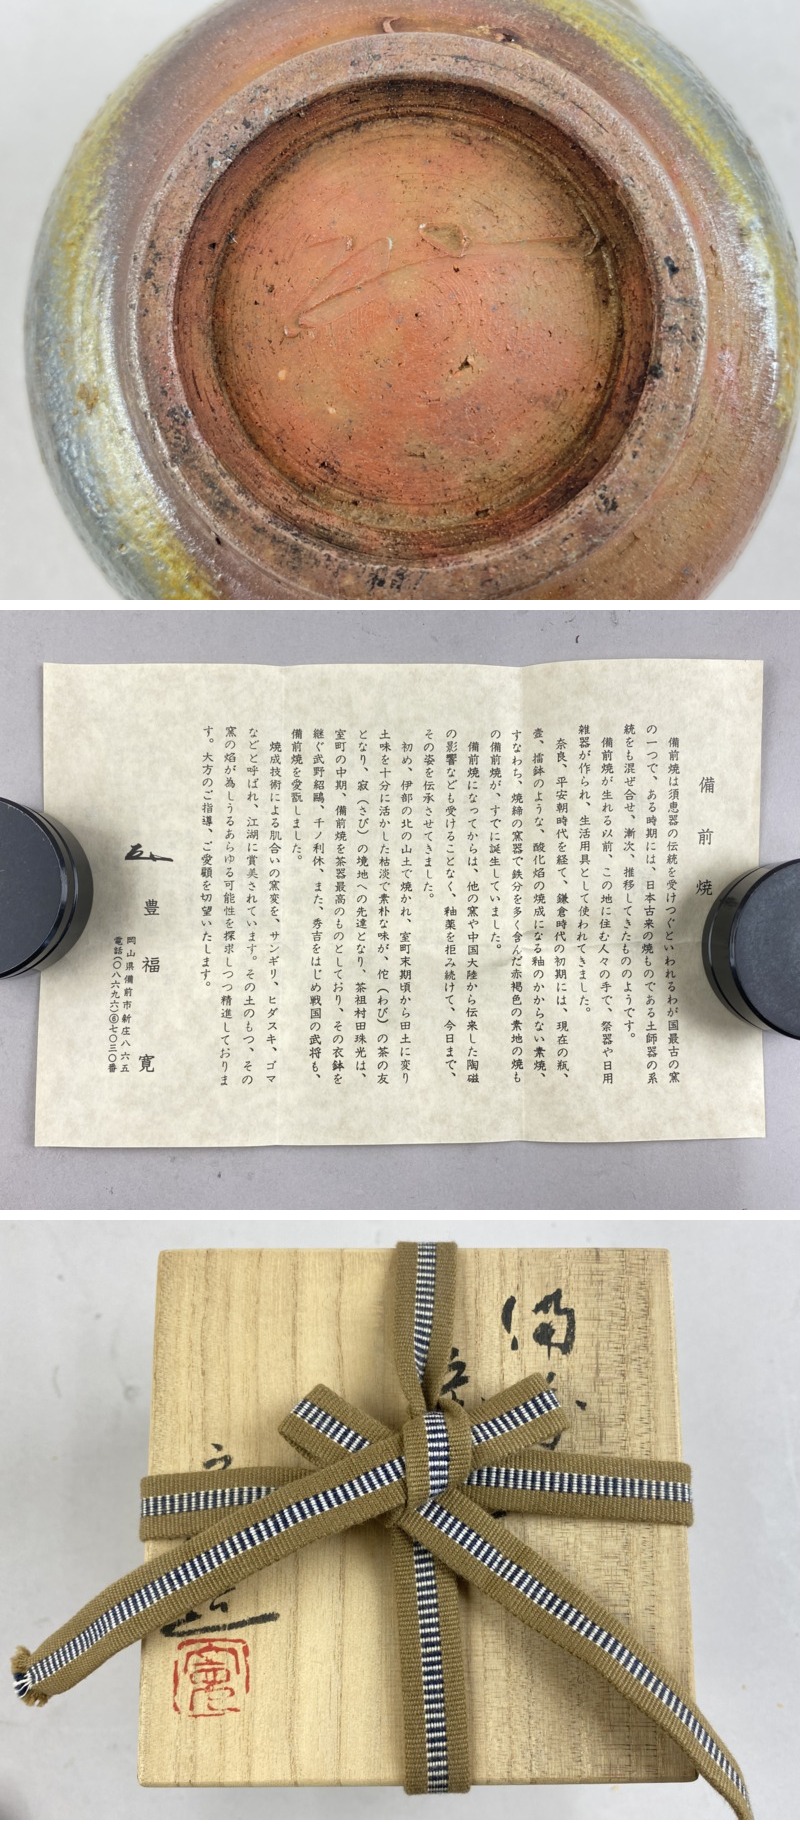 備前焼
備前焼は須恵器の伝統を受けつぐといわれるわが国最古の窯
の一つで、ある時期には、日本古来の焼ものである土師器の系
統をも混ぜ合せ、漸次、推移してきたもののようです。
備前焼が生れる以前、この地に住む人々の手で、祭器や日用
雑器が作られ、生活用具として使われてきました。
奈良、平安朝時代を経て、鎌倉時代の初期には、現在の瓶、
壺、擂鉢のような、酸化焔の焼成になる釉のかからない素焼、
すなわち、焼締の窯器で鉄分を多く含んだ赤褐色の素地の焼も
の備前焼が、すでに誕生していました。
備前焼になってからは、他の窯や中国大陸から伝来した陶磁
の影響なども受けることなく、釉薬を拒み続けて、今日まで、
その姿を伝承させてきました。
初め、伊部の北の山土で焼かれ、室町末期頃から田土に変り
土味を十分に活かした枯淡で素朴な味が、侘（わび）の茶の友
となり、寂（さび）の境地への先達となり、茶祖村田珠光は、
室町の中期、備前焼を茶器最高のものとしており、その衣鉢を
継ぐ武野紹鷗、千ノ利休、また、秀吉をはじめ戦国の武将も、
備前焼を愛翫しました。
焼成技術による肌合いの窯変を、サンギリ、ヒダスキ、ゴマ
などと呼ばれ、江湖に賞美されています。その土のもつ、その
窯の焰が為しうるあらゆる可能性を探求しつつ精進しておりま
す。大方のご指導、ご愛顧を切望いたします。
豊福寛
岡山県備前市新庄八六五
電話(〇八六九六)⑥七〇三〇番
備前
寛